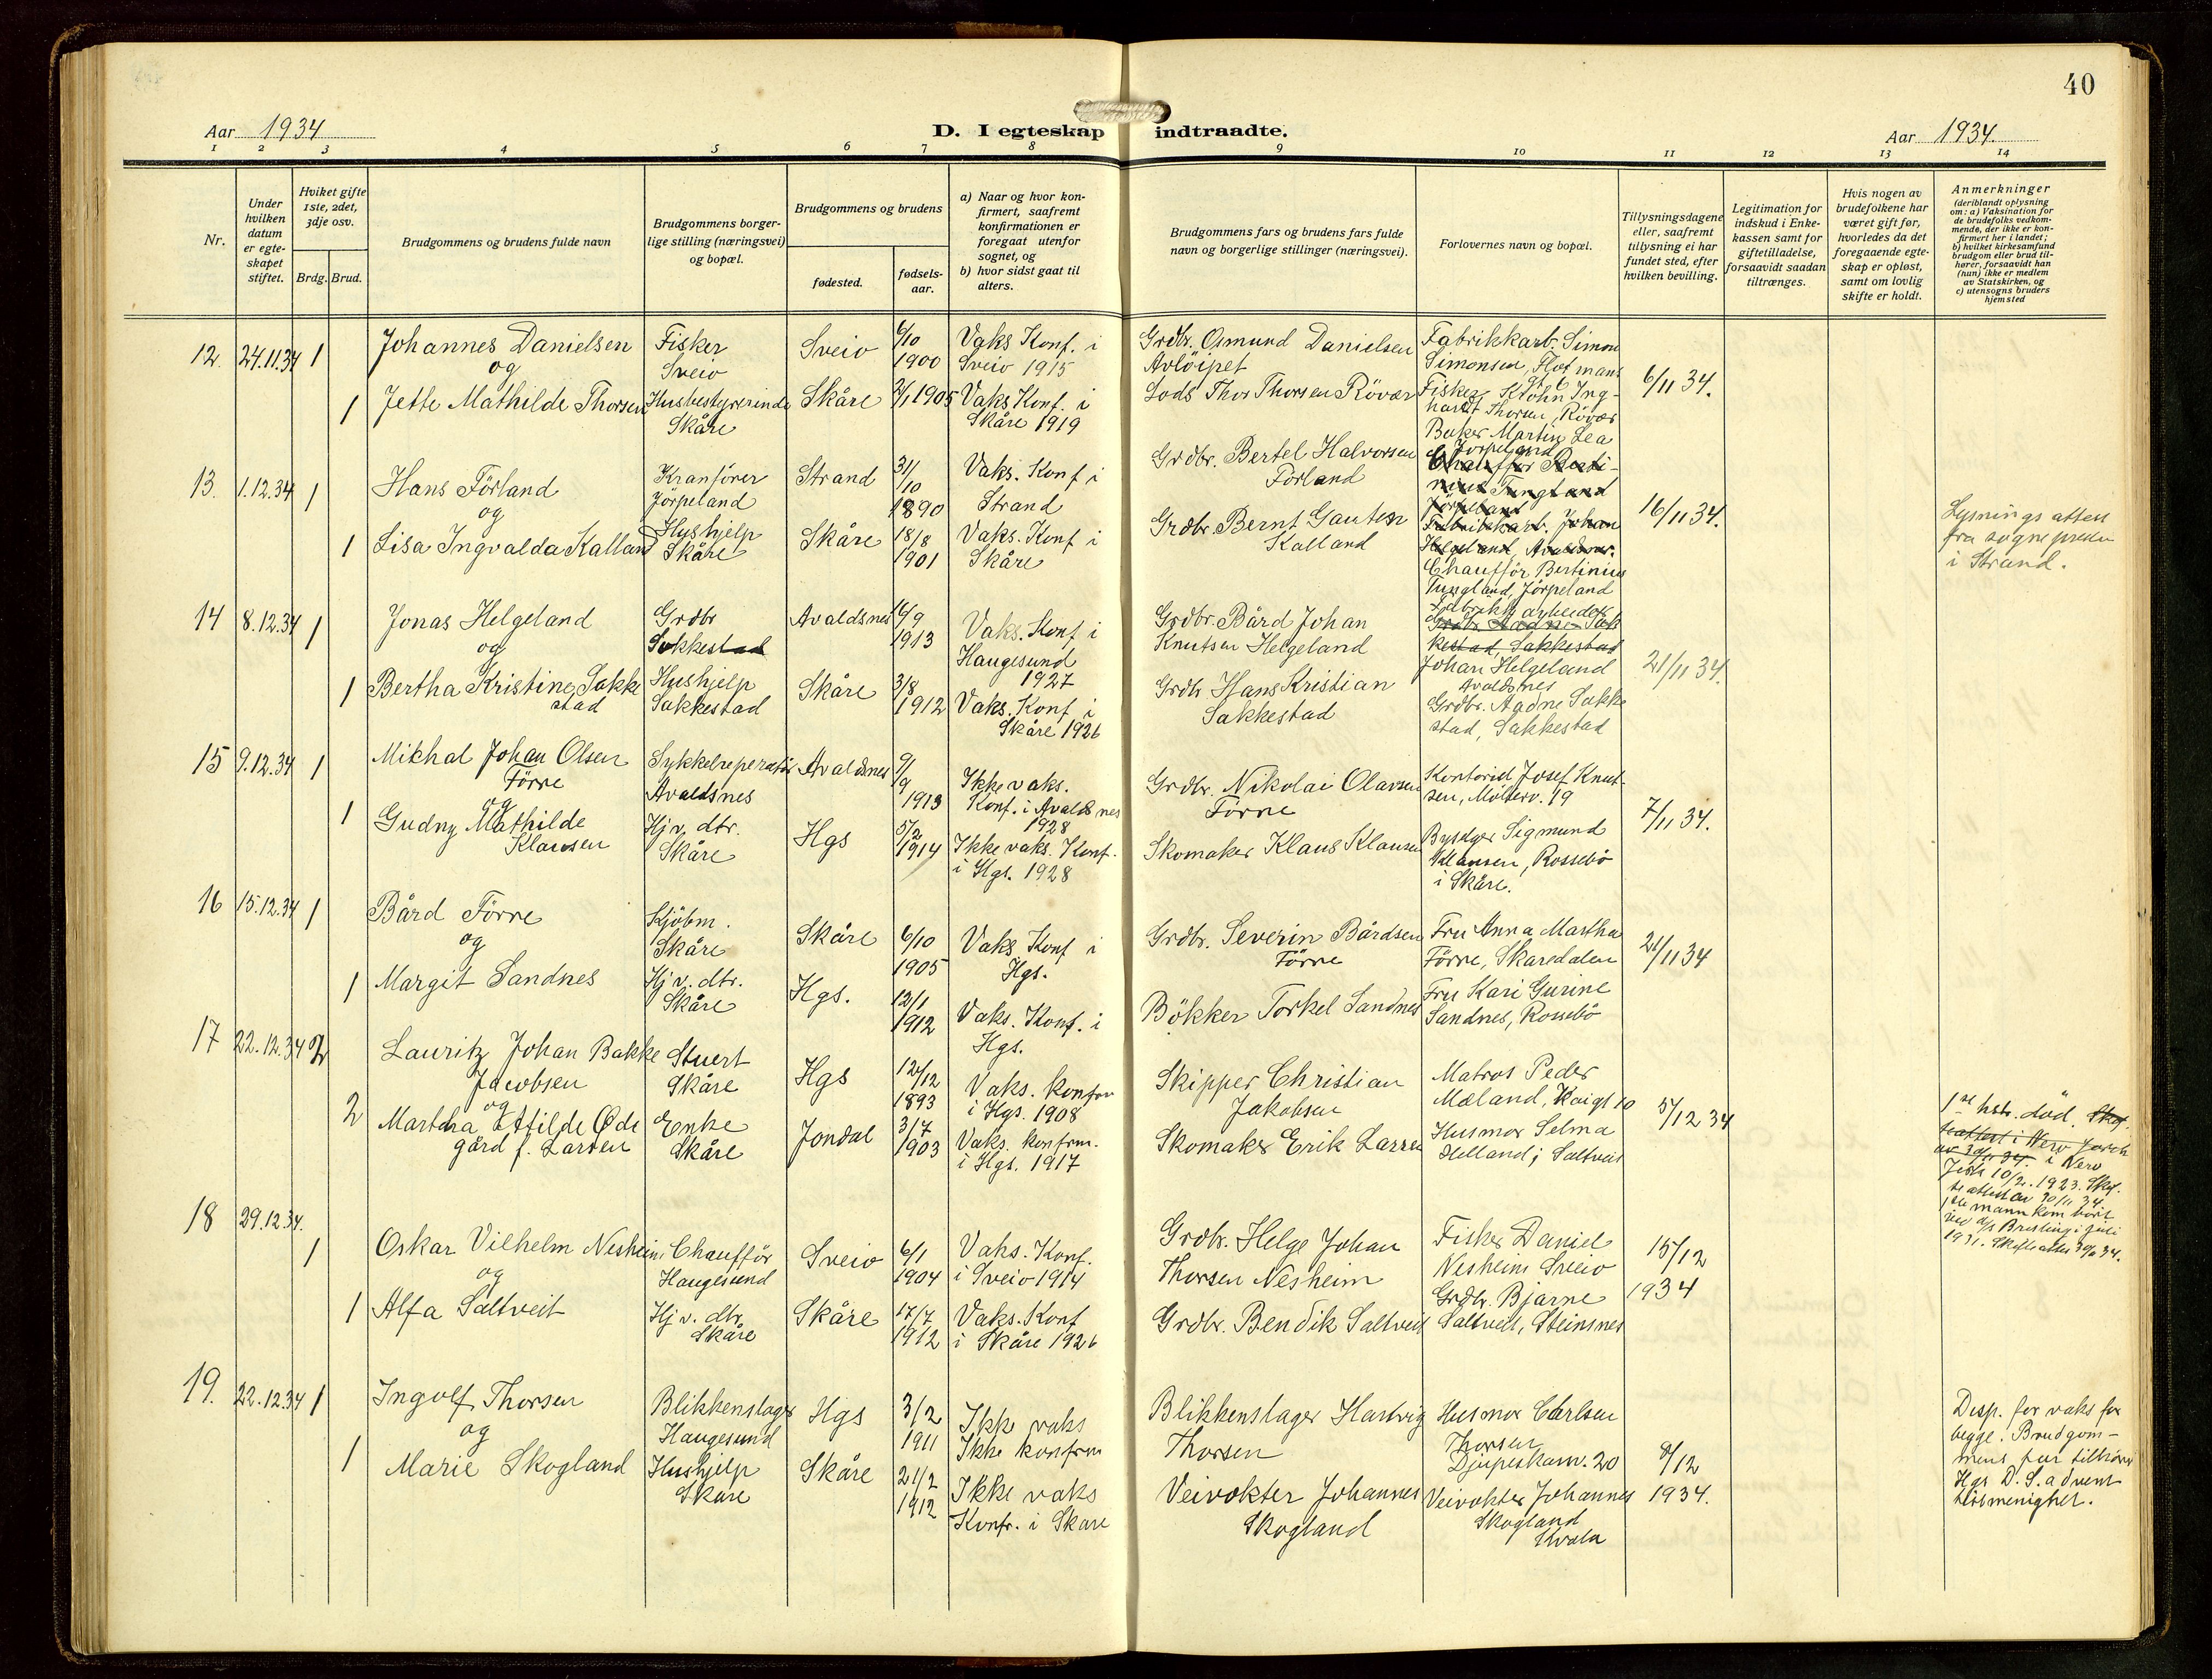 40
Aar 1934
D. I egteskap indtraadte.
Aar 1934.
1 2 3 4 5 6 7 8 9 10 11 12 13 14
Nr.
Under hvilken datum er egte-skapet stiftet.
Hviket gifte 1ste, 2det, 3dje osv.
Brdg. Brud.
Brudgommens og brudens fulde navn
Brudgommens borger-lige stilling (næringsvei) og bopæl.
Brudgommens og brudens
fødested.
fødsels-aar.
a) Naar og hvor kon-firmert, saafremt konfirmationen er foregaat utenfor sognet, og
b) hvor sidst gaat til alters.
Brudgommens fars og brudens fars fulde navn og borgerlige stillinger (næringsvei).
Forlovernes navn og bopæl.
Tillysningsdagene eller, saafremt tillysning ei har fundet sted, efter hvilken bevilling.
Legitimation for indskud i Enke-kassen samt for giftetilladelse, forsaavidt saadan tiltrænges.
Hvis nogen av brudefolkene har været gift før, hvorledes da det foregaaende egte-skap er opløst, samt om lovlig skifte er holdt.
Anmerkninger
(deriblandt oplysning om: a) Vaksination for de brudefolks vedkom-mende, der ikke er kon-firmert her i landet; b) hvilket kirkesamfund brudgom eller brud til-hører, forsaavidt han (hun) ikke er medlem av Statskirken, og c) utensogns bruders hjemsted
12. 24.11.34 1 Johannes Danielsen Fisker Sveio Sveio 6/10 1900 Vaks Konf. i Sveio 1915 Grdbr. Osmund Danielsen Avlöipet Fabrikkarb. Simon Simonsen, Flotmans 6/11 34.
og
1 Jette Mathilde Thorsen Husbestyrerinde Skåre Skåre 2/1 1905 Vaks Konf. i Skåre 1919 Lods Thor Thorsen Rövær Fisker Ing-hardt Thorsen, Rövær
13. 1.12.34 1 Hans Förland Kranförer Jörpeland Strand 31/10 1890 Vaks. Konf i Strand Grdbr. Bertel Halvorsen Förland Baker Martin Lea Jörpeland Chauffør Berti-nius Tungland Jörpeland 16/11 34. Lysnings attest fra sognepresten i Strand.
og
1 Lisa Ingvalda Kalland Hushjelp Skåre Skåre 18/8 1901 Vaks. Konf i Skåre Grdbr. Bernt Gautesn Kalland Fabrikkarb. Johan Helgeland, Avaldsnes. Chauffør Bertinius Tungland, Jörpeland
14 8.12.34 1 Jonas Helgeland Grdbr Sakkestad Avaldsnes 16/9 1913 Vaks. Konf i Haugesund 1927 Grdbr. Bård Johan Knutsen Helgeland Fabrikk arbeider Grdbr. Aadne Sak kestad, Sakkestad Johan Helgeland Avaldsnes 21/11 34.
og
1 Bertha Kristine Sakke stad Hushjelp Sakkestad Skåre 3/8 1912 Vaks. Konf i Skåre 1926 Grdbr Hans Kristian Sakkestad Grdbr. Aadne Sakke stad, Sakkestad
15 9.12.34 1 Mikhal Johan Olsen Förre Sykkelreperatör Avaldsnes Avaldsnes 9/9 1913 Ikke vaks. Konf. i Avaldsnes 1928 Grdbr. Nikolai Olavsen Förre Kontorist Josef Knut-sen, Mölterv. 19 7/11 34.
og
1 Gudny Mathilde Klausen Hjv. dtr. Skåre Hgs 5/2 1914 Ikke vaks. Konf. i Hgs. 1928 Skomaker Klaus Klausen Sigmund Klausen, Rossebö i Skåre.
16 15.12.34 1 Bård Förre Kjöbm. Skåre Skåre 6/10 1905 Vaks Konf i Hgs. Grdbr. Severin Bårdsen Förre Fru Anna Martha Förre, Skaredalen 21/11 34
og
1 Margit Sandnes Hjv. dtr. Skåre Hgs. 12/1 1912 Vaks. Konf. i Hgs. Bökker Torkel Sandnes Fru Kari Gurine Sandnes, Rossebö
17 22.12.34 2 Lauritz Johan Bakke Jacobsen Stuert Skåre Hgs 12/12 1893 Vaks. konfor i Hgs. 1908 Skipper Christian Jakobsen Matros Peder Mæland, 10 5/12 34 1ste hstr. död. i Nerv York 10/2. 1923. Skif-te attest av 30/11 34 1ste mann kom bort ved d/s Bristling i juli 1931. Skifteattest 30/11 34.
og
2 Martha Otilde Öde gård f. Larsen Enke Skåre Jondal 3/7 1903 Vaks. konfrm. i Hgs. 1917 Skomaker Erik Larsen Husmor Selma Helland, Saltveit
18 29.12.34. 1 Oskar Vilhelm Nesheim Chauffør Haugesund Sveio 6/1 1904 Vaks. Konf. i Sveio 1914 Grdbr. Helge Johan Thorsen Nesheim Fisker Daniel Nesheim Sveio 15/12 1934
og
1 Alfa Saltveit Hjv. dtr. Skåre Skåre 17/7 1912 Vaks. Konf i Skåre 1926 Grdbr. Bendik Saltveit Grdbr. Bjarne Saltveit, Steinsnes
19. 22.12.34 1 Ingolf Thorsen Blikkenslager Haugesund Hgs 3/2 1911 Ikke vaks Ikke konfrm Blikkenslager Hartvig Thorsen Husmor Carlsen Thorsen Djupeskam. 20 8/12 1934. Desp. for vaks for begge. Brudgom-mens far tilhörer Hgs D. S. advent tistmenighet.
og
1 Marie Skogland Hushjelp Skåre Skåre 21/2 1912 Ikke vaks Konfr. i Skåre Veivokter Johannes Skogland Veivokter Johannes Skogland Kvala